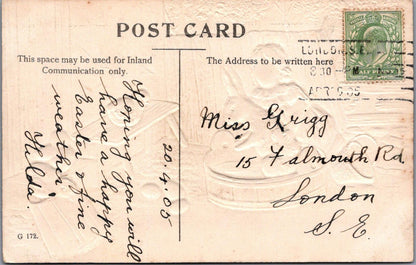 POST CARD
This space may be used for Inland
Communication only.
The Address to be written here
LONDON.S.E.
AP 05
20.4.05
Hoping you will
have a happy
Easter & fine
weather
Hilda
Miss Grigg
15 Falmouth Rd.
London
S. E.
G 172.